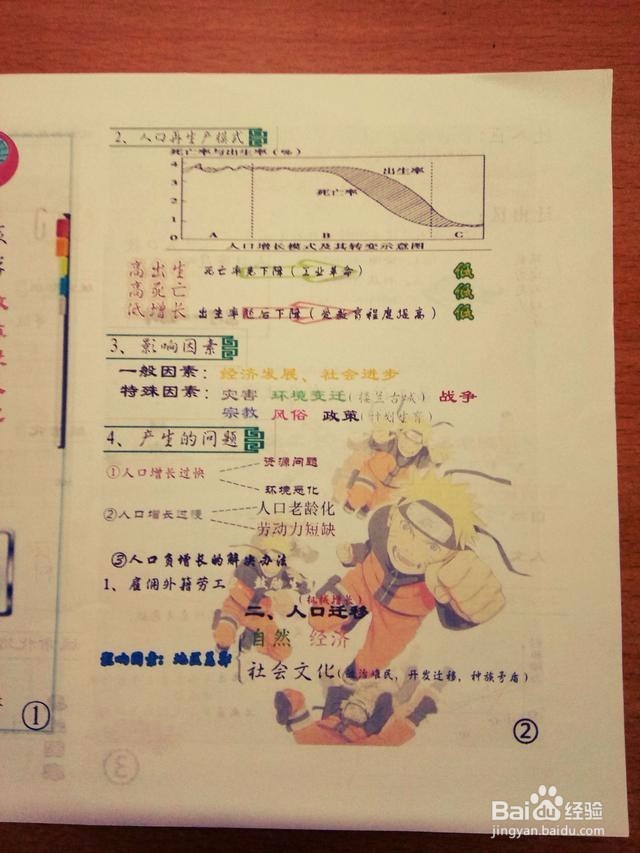 2、人口再生产模式
死亡率与出生率(%)
4
3
2
1
0
出生率
死亡率
A B C
人口增长模式及其转变示意图
高出生 死亡率先下降(工业革命) 低
高死亡 低
低增长 出生率随后下降(受教育程度提高) 低
3、影响因素
一般因素：经济发展、社会进步
特殊因素：灾害 环境变迁(楼兰古城) 战争
宗教 风俗 政策(计划生育)
4、产生的问题
①人口增长过快
资源问题
环境恶化
②人口增长过慢
人口老龄化
劳动力短缺
③人口负增长的解决办法
1、雇用外籍劳工
(机械增长)
二、人口迁移
自然 经济
影响因素：地区差异
社会文化(政治难民，开发迁移，种族矛盾)
①
②
③
Baidu经验
jingyan.baidu.com